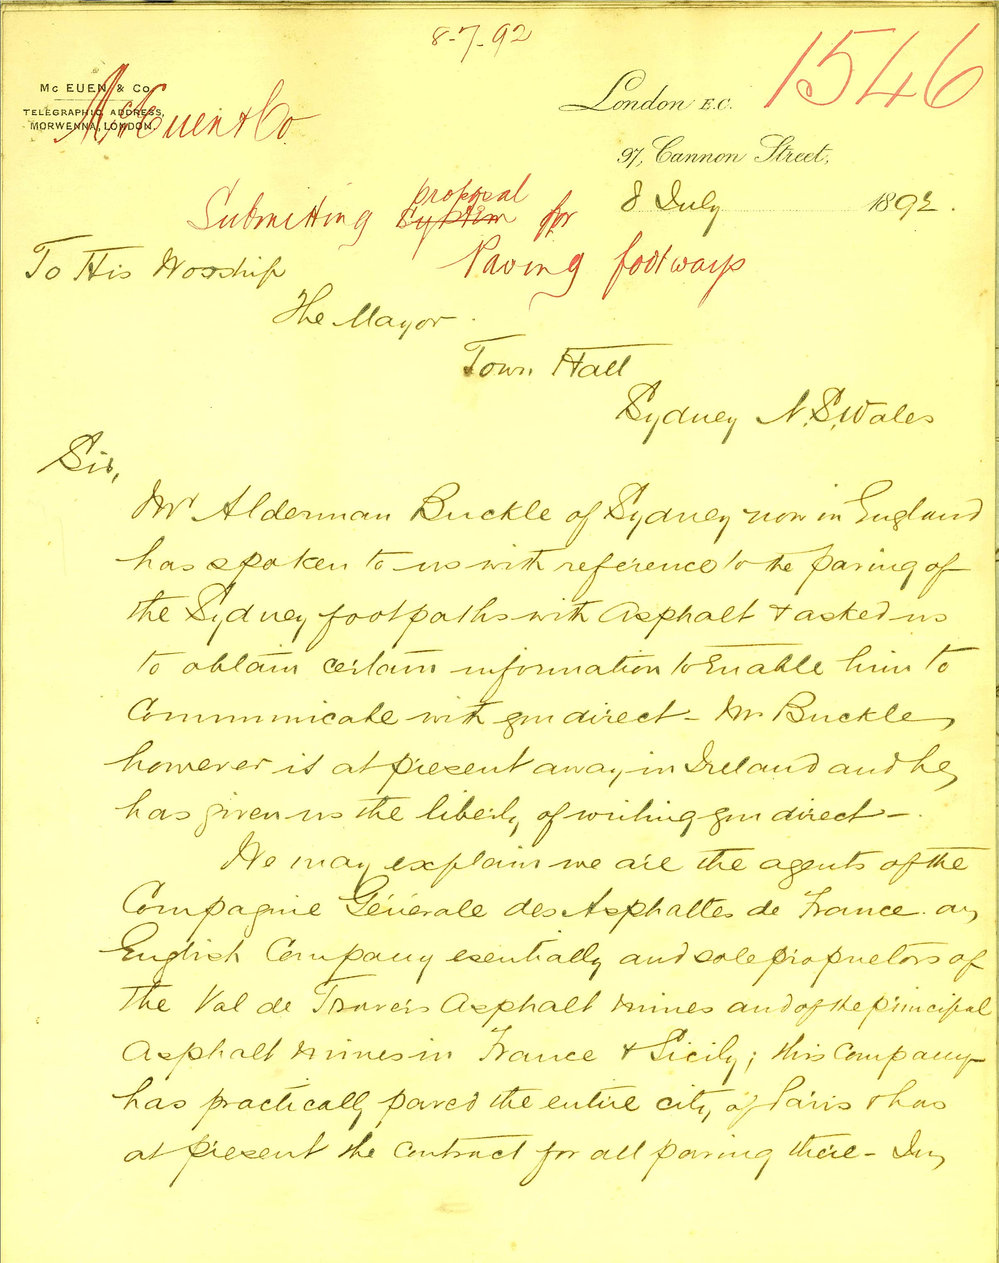 8-7-92
1546
Mc EUEN & Co
TELEGRAPHIC ADDRESS,
MORWENNA, LONDON.
McEuen & Co
London E.C.
97, Cannon Street,
8 July 1892.
Submitting system proposal for
Paving footways
To His Worship
The Mayor
Town Hall
Sydney N.S.Wales
Sir,
Mr Alderman Buckle of Sydney now in England
has spoken to us with reference to the paving of
the Sydney footpaths with Asphalt & asked us
to obtain certain information to enable him to
communicate with you direct - Mr Buckle
however is at present away in Ireland and he
has given us the liberty of writing you direct -
We may explain we are the agents of the
Compagnie Génerale des Asphaltes de France an
English Company esentially and sole proprietors of
the Val de Travers Asphalt mines and of the principal
Asphalt mines in France & Sicily; this Company
has practically paved the entire city of Paris & has
at present the contract for all paving there - In